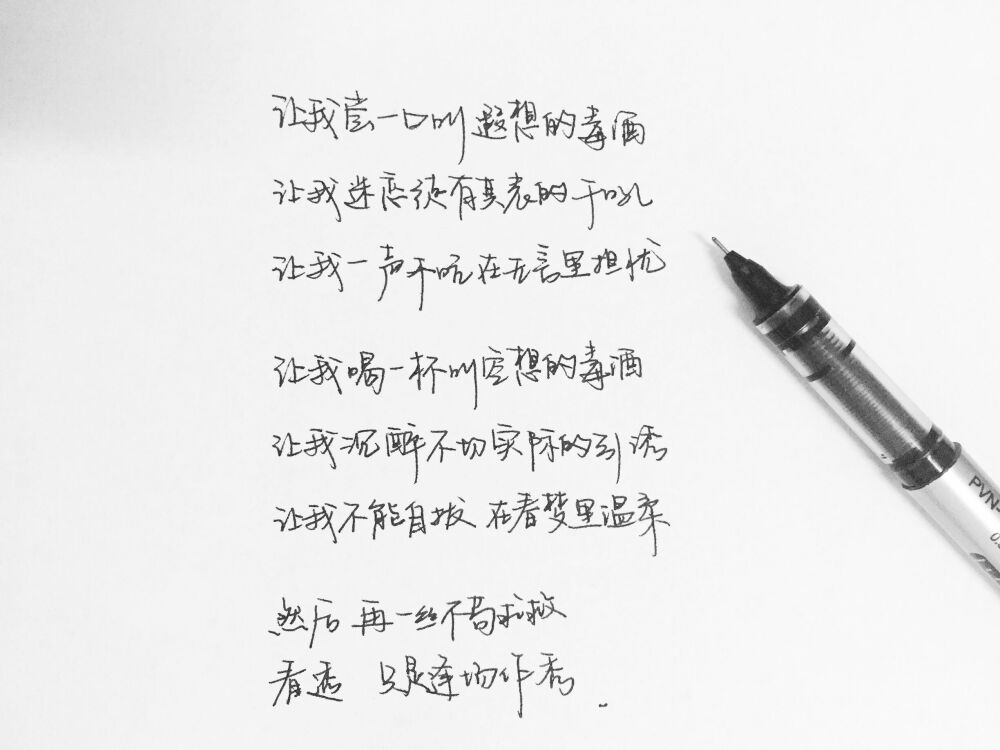 让我尝一口叫遐想的毒酒
让我迷恋徒有其表的干吼
让我一声不吭在无言里担忧
让我喝一杯叫空想的毒酒
让我沉醉不切实际的引诱
让我不能自拔 在春梦里温柔
然后 再一丝不苟拯救
看透 只是逢场作秀.
PVN
0.